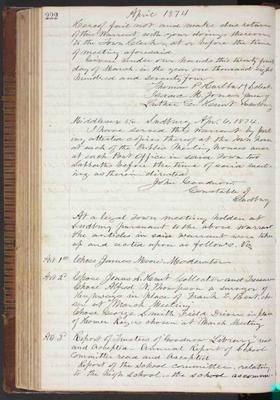 222
April 1874
Hereof fail not and make due return
of this Warrant with your doings thereon
to the Town Clerk, at or before the time
of meeting aforesaid.
Given under our hands this twenty first
day of March in the year one thousand eight
hundred and seventy four
Thomas P. Hurlbut Select
men of
Luther Sudbury
Middlesex ss. Sudbury Apr. 6, 1874.
I have served this Warrant by post
ing attested copies thereof at the Town house
at each of the Public Meeting Houses and
at each Post Office in said Town two
Sabbaths before the time of said meet
ing as therein directed
John Goodnow
Constable of
Sudbury
At a legal Town meeting holden at
Sudbury pursuant to the above Warrant
the articles in said Warrant were taken
up and acted upon as follows. Viz
Art 1st Chose James Moore Moderator
Art 2d Chose Jonas S. Hunt Collector and Treasurer
Chose Alfred N. Thompson a surveyor of
Highways in place of Frank F. cho
sen at March Meeting
Chose George Smith Field Driver in place
of Homer Rogers chosen at March Meeting
Art 3d Report of Trustees of Goodnow Library read
and Accepted. Annual Report of School
Committee read and Accepted
Report of the School committee, relating
to the high School